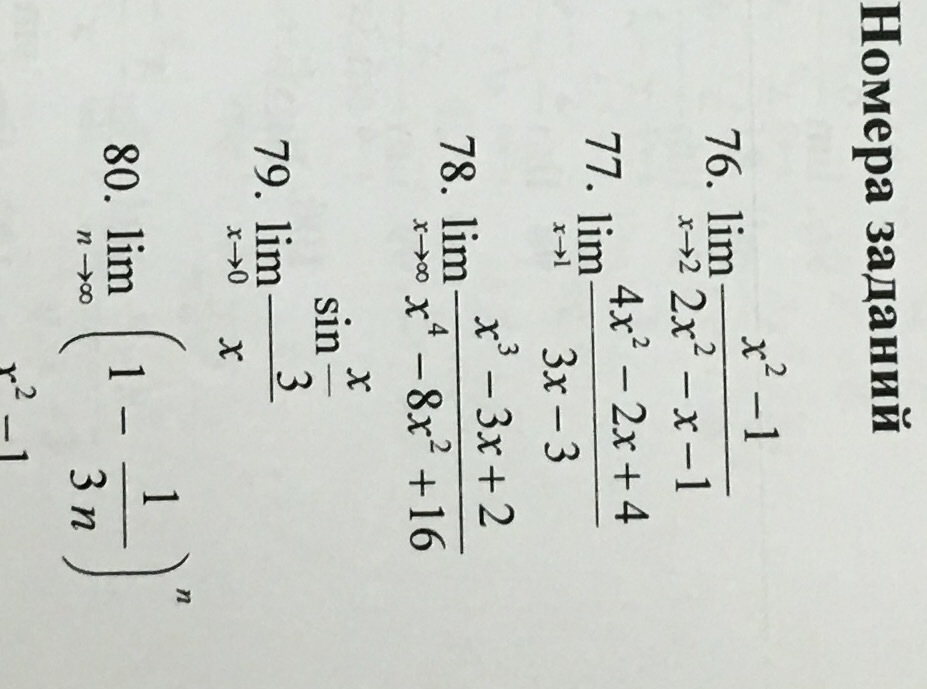 Номера заданий
76. lim x→2 (x² − 1)/(2x² − x − 1)
77. lim x→1 (4x² − 2x + 4)/(3x − 3)
78. lim x→∞ (x³ − 3x + 2)/(x⁴ − 8x² + 16)
79. lim x→0 (sin x/3)/x
80. lim n→∞ (1 − 1/(3n))ⁿ
x² − 1